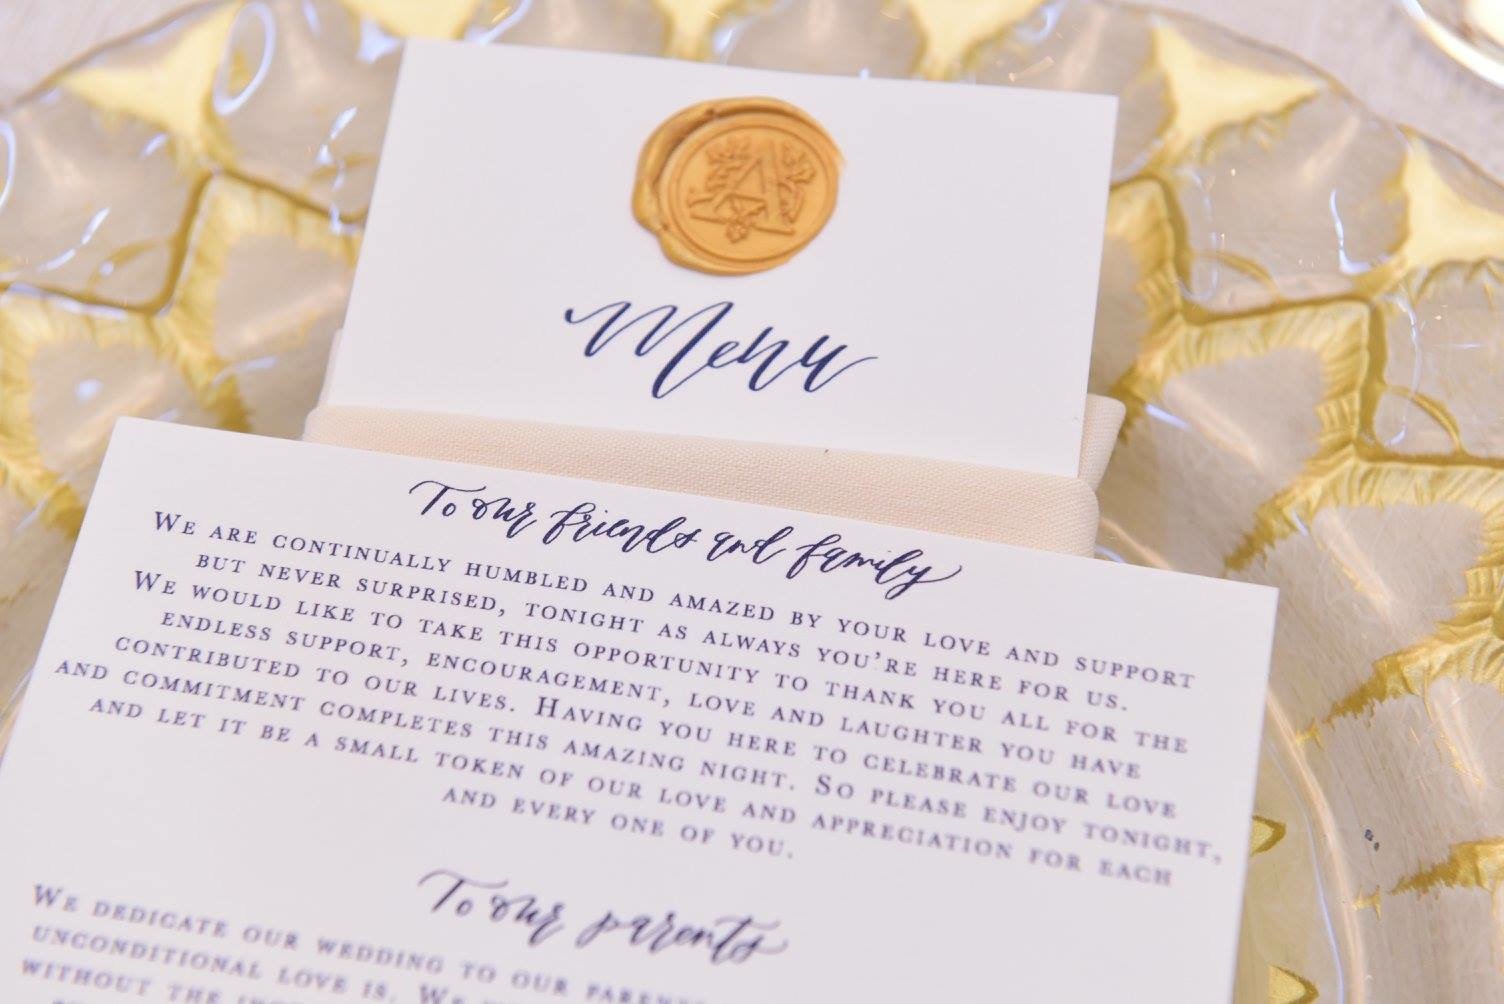 A
Menu
To our friends and family
WE ARE CONTINUALLY HUMBLED AND AMAZED BY YOUR LOVE AND SUPPORT
BUT NEVER SURPRISED, TONIGHT AS ALWAYS YOU'RE HERE FOR US.
WE WOULD LIKE TO TAKE THIS OPPORTUNITY TO THANK YOU ALL FOR THE
ENDLESS SUPPORT, ENCOURAGEMENT, LOVE AND LAUGHTER YOU HAVE
CONTRIBUTED TO OUR LIVES. HAVING YOU HERE TO CELEBRATE OUR LOVE
AND COMMITMENT COMPLETES THIS AMAZING NIGHT. SO PLEASE ENJOY TONIGHT,
AND LET IT BE A SMALL TOKEN OF OUR LOVE AND APPRECIATION FOR EACH
AND EVERY ONE OF YOU.
To our parents
WE DEDICATE OUR WEDDING TO OUR
UNCONDITIONAL LOVE IS. WE
WITHOUT THE